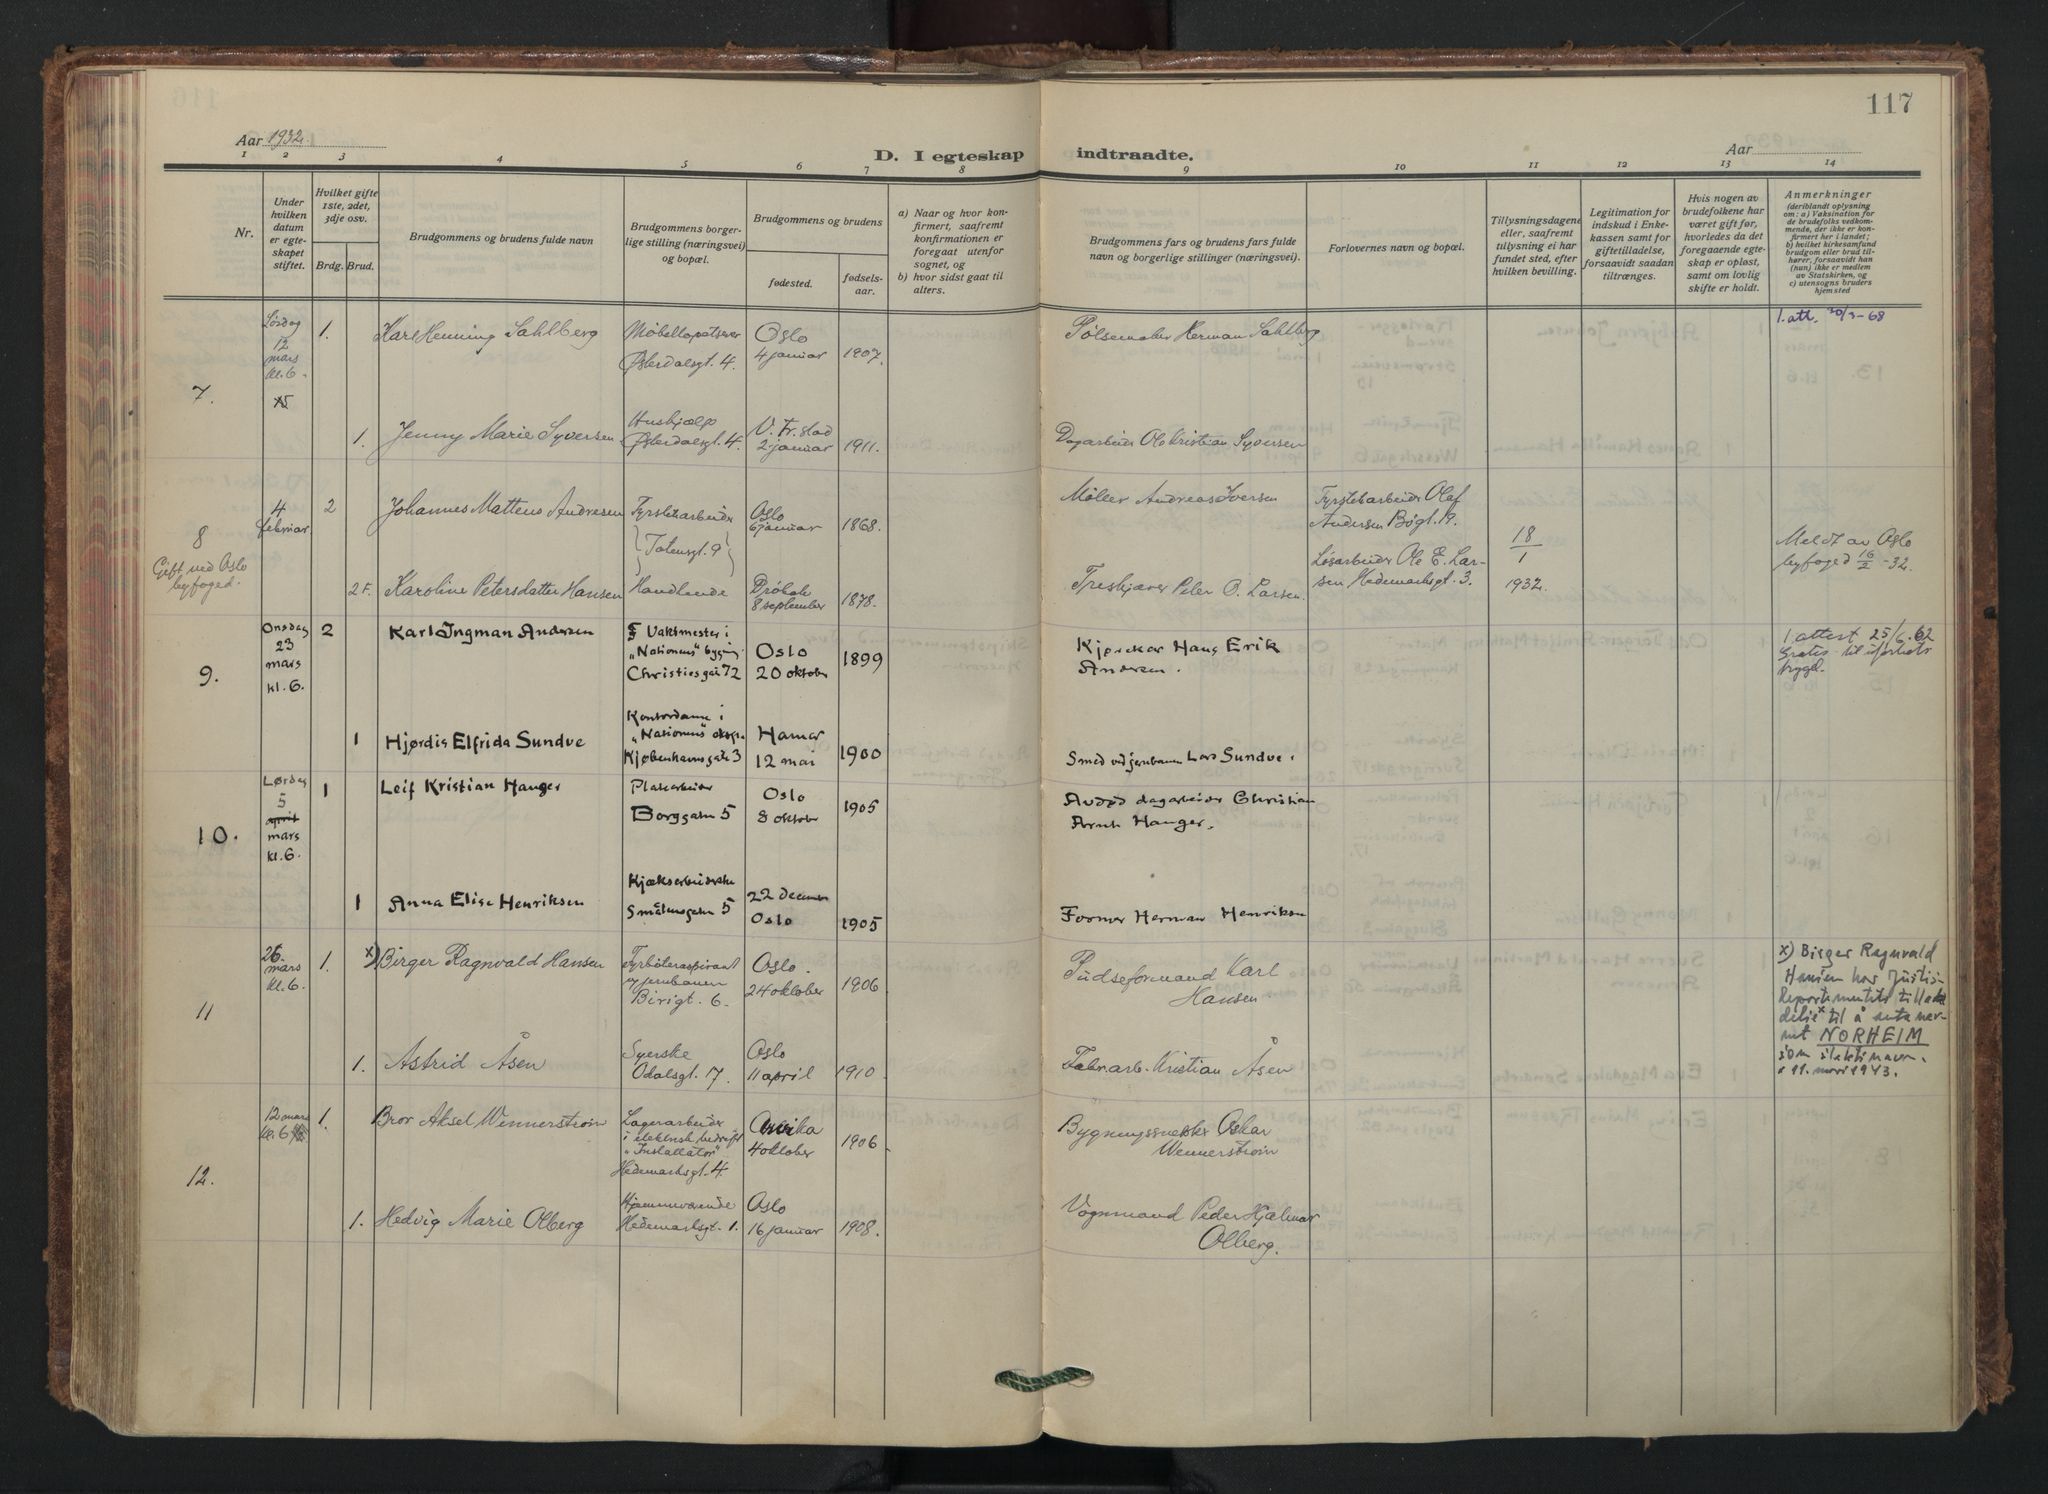 117
Aar 1932.
D. I egteskap indtraadte.
Aar
1 2 3 4 5 6 7 8 9 10 11 12 13 14
Nr.
Under
hvilken
datum
er egte-
skapet
stiftet.
Hvilket gifte
1ste, 2det,
3dje osv.
Brdg. Brud.
Brudgommens og brudens fulde navn
Brudgommens borger-
lige stilling (næringsvei)
og bopæl.
Brudgommens og brudens
fødested.
fødsels-
aar.
a) Naar og hvor kon-
firmert, saafremt
konfirmationen er
foregaat utenfor
sognet, og
b) hvor sidst gaat til
alters.
Brudgommens fars og brudens fars fulde
navn og borgerlige stillinger (næringsvei).
Forlovernes navn og bopæl.
Tillysningsdagene
eller, saafremt
tillysning ei har
fundet sted, efter
hvilken bevilling.
Legitimation for
indskud i Enke-
kassen samt for
giftetilladelse,
forsaavidt saadan
tiltrænges.
Hvis nogen av
brudefolkene har
været gift før,
hvorledes da det
foregaaende egte-
skap er opløst,
samt om lovlig
skifte er holdt.
Anmerkninger
(deriblandt oplysning
om: a) Vaksination for
de brudefolks vedkom-
mende, der ikke er kon-
firmert her i landet;
b) hvilket kirkesamfund
brudgom eller brud til-
hører, forsaavidt han
(hun) ikke er medlem
av Statskirken, og
c) utensogns bruders
hjemsted
7.
Lørdag
12
mars
kl. 6.
1.
Karl Henning Sahlberg
Møbeltapetserer
Østerdalsgt. 4.
Oslo
4 januar
1907.
Pølsemaker Herman Sahlberg
1. att. 20/3-68
1.
Jenny Marie Syversen
Hushjælp
Østerdalsgt. 4.
V. Fr.stad
2 januar
1911.
Dagarbeider Ole Kristian Syversen
8
Gift ved Oslo
byfoged.
4
februar.
2
Johannes Matteus Andresen
Fyrstikarbeider
Totensgt. 9
Oslo
6 januar
1868.
Møller Andreas Iversen
Fyrstikarbeider Olaf
Andersen Bøgt. 19.
Løsarbeider Ole E. Lar-
sen Hedemarksgt. 3.
18
1
1932.
Meldt av Oslo
byfoged 16/2 -32.
2 F.
Karoline Petersdatter Hansen
Handlende
Drøbak
8 september
1878.
Treskjærer Peter O. Larsen.
9.
Onsdag
23
mars
kl. 6.
2
Karl Ingman Andersen
Vaktmester i
"Nationens" bygning
Christiesgate 72
Oslo
20 oktober
1899
Kjørekar Hans Erik
Andersen.
1. attest 25/6. 62
Gratis til uførhets
trygd.
1
Hjørdis Elfrida Sundve
Kontordame i
"Nationens" eksp.
Kjøbenhavnsgate 3
Hamar
12 mai
1900
Smed ved jernbanen Lars Sundve.
10.
Lørdag
5
april
mars
kl. 6.
1
Leif Kristian Hanger
Platearbeider
Borggaten 5
Oslo
8 oktober
1905
Avdød dagarbeider Christian
Arnt Hanger.
1
Anna Elise Henriksen
Kjeksarbeiderske
Smålensgaten 5
22 decemer
Oslo
1905
Former Herman Henriksen
11
26.
mars
kl. 6.
1.
x) Birger Ragnvald Hansen
Fyrbøteraspirant
v/jernbanen
Birigt. 6.
Oslo.
24 oktober
1906
Pudseformand Karl
Hansen.
x) Birger Ragnvald
Hansen har Justis-
departementets tillad
delse til å anta nav-
net NORHEIM
som slektsnavn.
11. mars 1943.
1.
Astrid Åsen
Syerske
Odalsgt. 17.
Oslo
11 april
1910.
Fabrarb. Kristian Åsen
12.
12 mars
kl. 6
1.
Bror Aksel Wennerstrøm
Lagerarbeider
i elektrisk bedrift
"Installatør"
Hedemarksgt. 4
Arvika
4 oktober
1906
Bygningssnekker Oskar
Wennerstrøm
1.
Hedvig Marie Olberg
Hjemmeværende
Hedemarksgt. 1.
Oslo
16 januar
1908.
Vognmand Peder Hjalmar
Olberg.